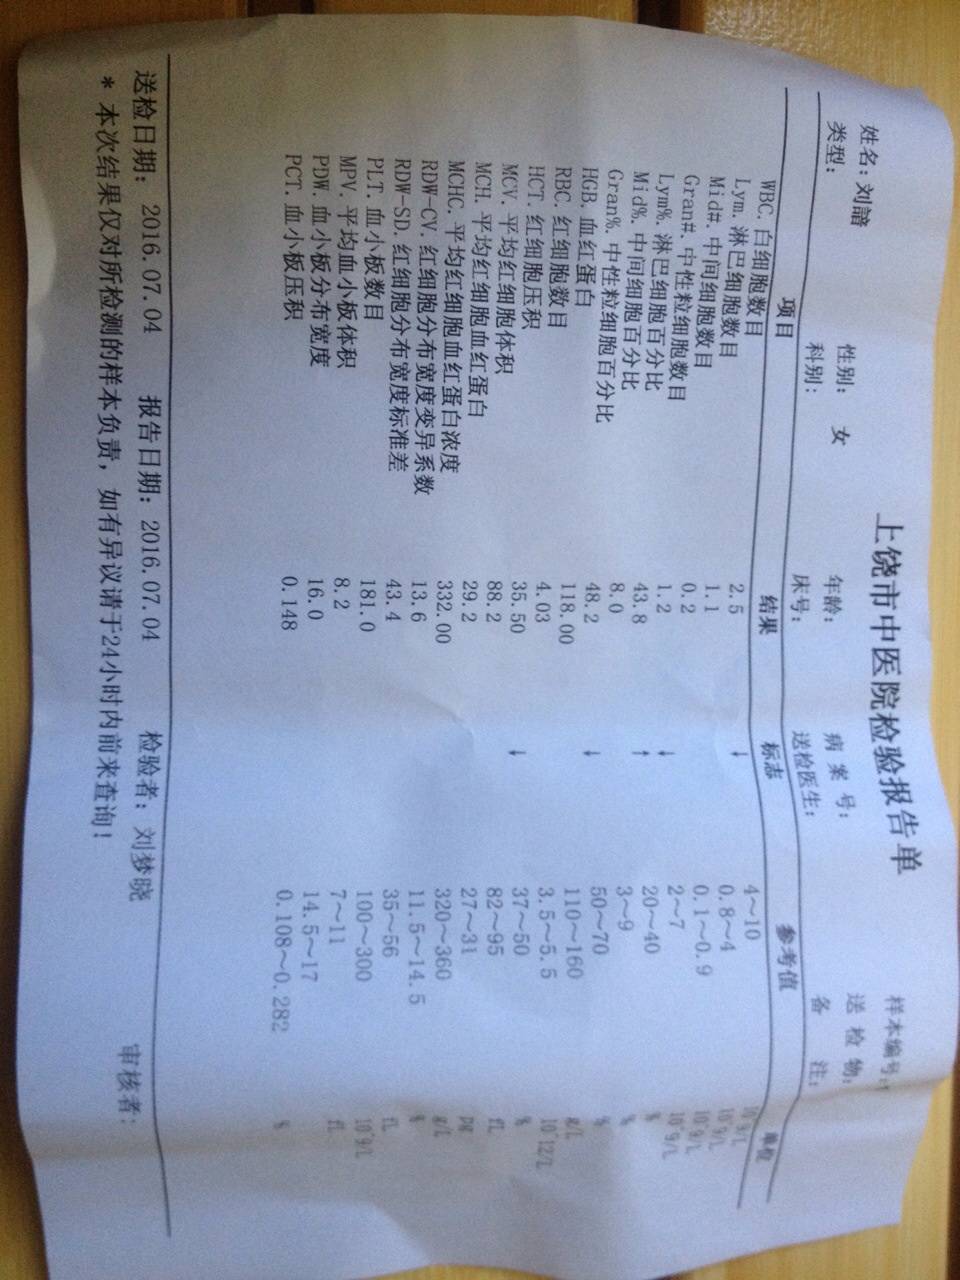 上饶市中医院检验报告单
样本编号:
姓名:刘諳 性别: 女 年龄: 病 案 号: 送 检 物:
类型: 科别: 床号: 送检医生: 备 注:
项目 结果 标志 参考值 单位
WBC. 白细胞数目 2.5 ↓ 4~10 10^9/L
Lym. 淋巴细胞数目 1.1 0.8~4 10^9/L
Mid#. 中间细胞数目 0.2 0.1~0.9 10^9/L
Gran#. 中性粒细胞数目 1.2 ↓ 2~7 10^9/L
Lym%. 淋巴细胞百分比 43.8 ↑ 20~40 %
Mid%. 中间细胞百分比 8.0 3~9 %
Gran%. 中性粒细胞百分比 48.2 ↓ 50~70 %
HGB. 血红蛋白 118.00 110~160 g/L
RBC. 红细胞数目 4.03 3.5~5.5 10^12/L
HCT. 红细胞压积 35.50 ↓ 37~50 %
MCV. 平均红细胞体积 88.2 82~95 fL
MCH. 平均红细胞血红蛋白 29.2 27~31 pg
MCHC. 平均红细胞血红蛋白浓度 332.00 320~360 g/L
RDW-CV. 红细胞分布宽度变异系数 13.6 11.5~14.5 %
RDW-SD. 红细胞分布宽度标准差 43.4 35~56 fL
PLT. 血小板数目 181.0 100~300 10^9/L
MPV. 平均血小板体积 8.2 7~11 fL
PDW. 血小板分布宽度 16.0 14.5~17
PCT. 血小板压积 0.148 0.108~0.282 %
送检日期: 2016.07.04 报告日期: 2016.07.04 检验者: 刘梦晓 审核者:
* 本次结果仅对所检测的样本负责, 如有异议请于24小时内前来查询!